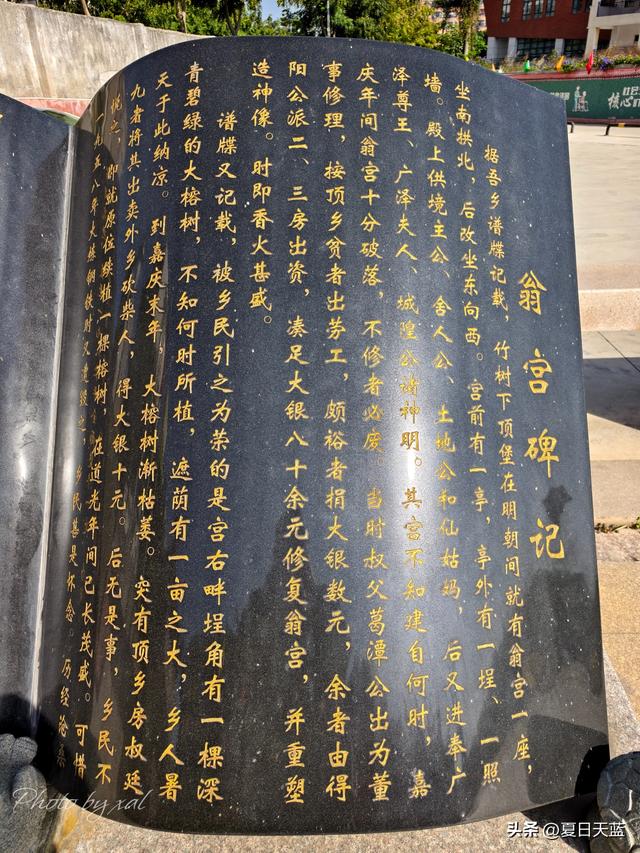 翁宫碑记
据吾乡谱牒记载，竹树下顶堡在明朝间就有翁宫一座，
坐南拱北，后改坐东向西。宫前有一亭，亭外有一埕、一照
墙。殿上供境主公、舍人公、土地公和仙姑妈，后又进奉广
泽尊王、广泽夫人、城隍公诸神明。其宫不知建自何时，嘉
庆年间翁宫十分破落，不修者必废。当时叔父葛潭公出为董
事修理，按顶乡贫者出劳工，颇裕者捐大银数元，余者由得
阳公派二、三房出资，凑足大银八十余元修复翁宫，并重塑
造神像。时即香火甚盛。
谱牒又记载，被乡民引之为荣的是宫右畔埕角有一棵深
青碧绿的大榕树，不知何时所植，遮荫有一亩之大，乡人暑
天于此纳凉。到嘉庆末年，大榕树渐枯萎。突有顶乡房叔廷
九者将其出卖外乡砍柴人，得大银十元。后无是事，乡民不
悦之，即就原位续植一棵榕树，在道光年间已长茂盛。可惜
一九五八年大炼钢铁时又遭毁之，乡民甚是怀念。历经沧桑
Photo by xal
头条 @夏日天蓝